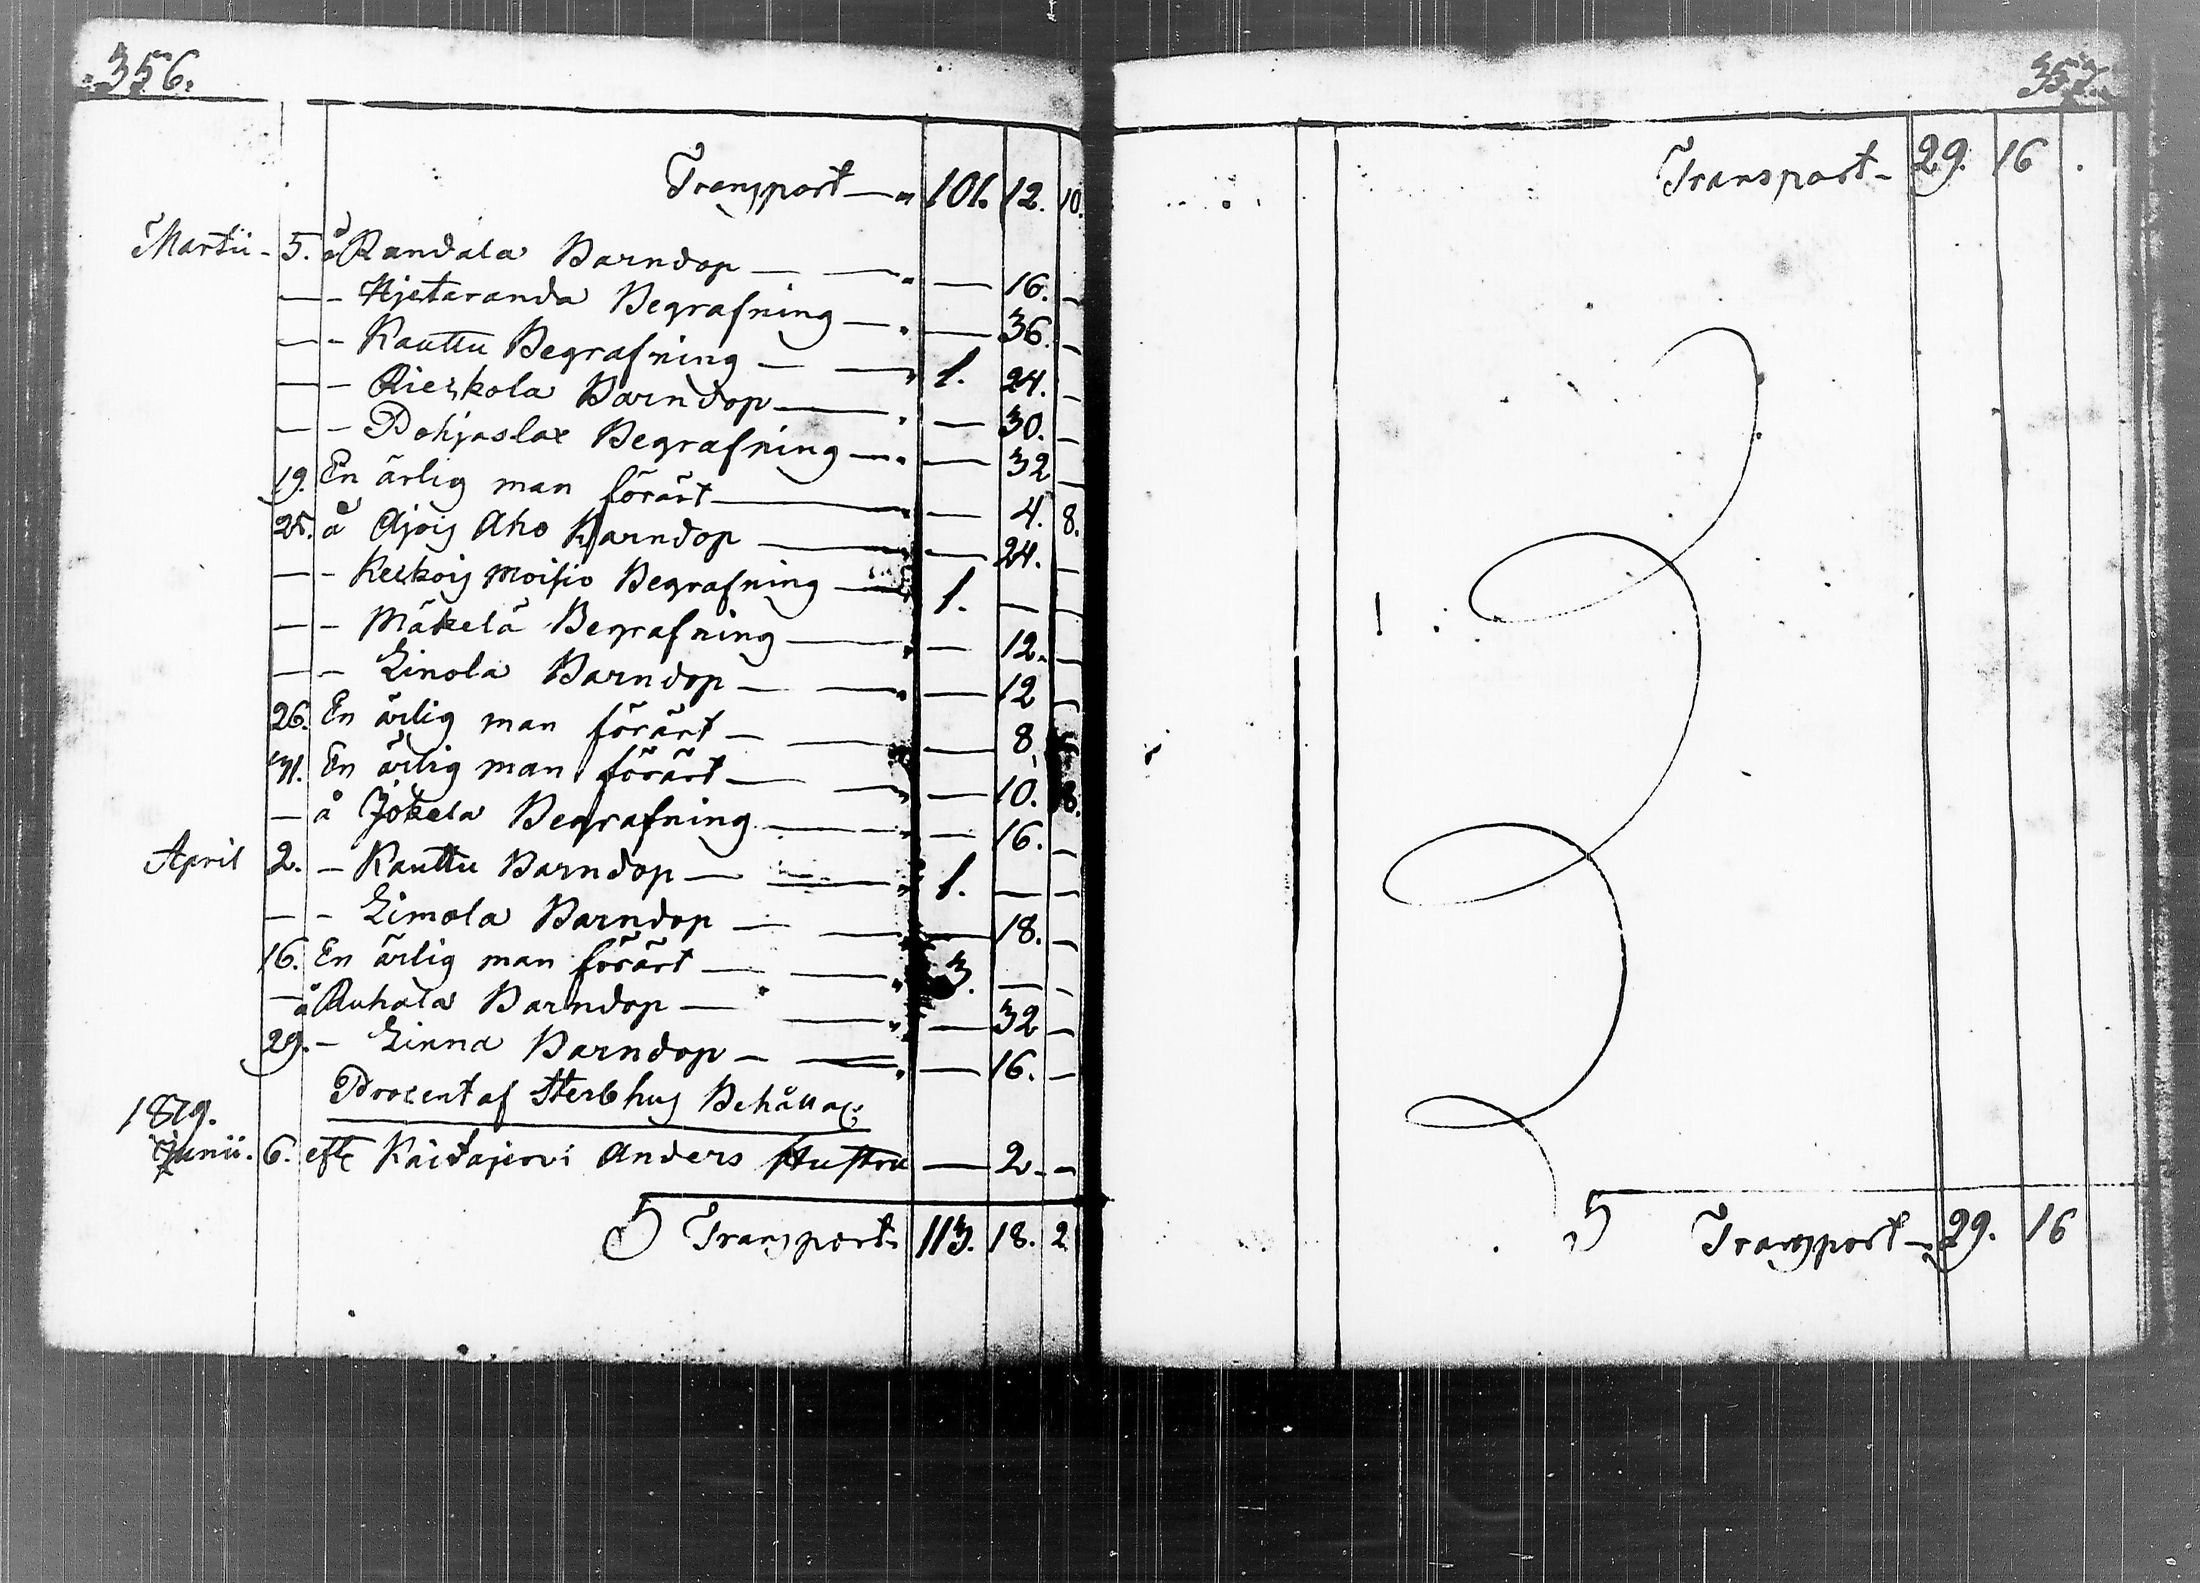 356.
Transport — " 101. 12. 10.
Martii - 5. å Randala Barndop — — " — 16. —
— - Hjetaranda Begrafning — " — 36. —
— - Kauttu Begrafning — — " 1. 24. —
— - Rieskola Barndop — " — 30. —
— - Pohjaslax Begrafning — " — 32 —
19. En ärlig man förärt — " — 4. 8.
25. å Ajois Aho Barndop — " — 24. —
— - Keskois Moisio Begrafning — " 1. — —
— - Mäkelä Begrafning — " — 12. —
— - Linola Barndop — — " — 12 —
26. En ärlig man förärt — — " — 8
31. En ärlig man förärt — — " — 10. 8.
— å Jokela Begrafning — " — 16. —
April 2. - Kauttu Barndop — — " 1. — —
— - Limola Barndop — — " — 18. —
16. En ärlig man förärt — — " 3. — —
— å Ruhala Barndop — — " — 32 —
29. - Linna Barndop — — " — 16. —
Procent af Sterbhus Behålla
1809.
Junii. 6. eft Kaitajervi Anders Hustru — 2. —
S Transport 113. 18. 2
357.
Transport - 29. 16 .
S Transport - 29. 16